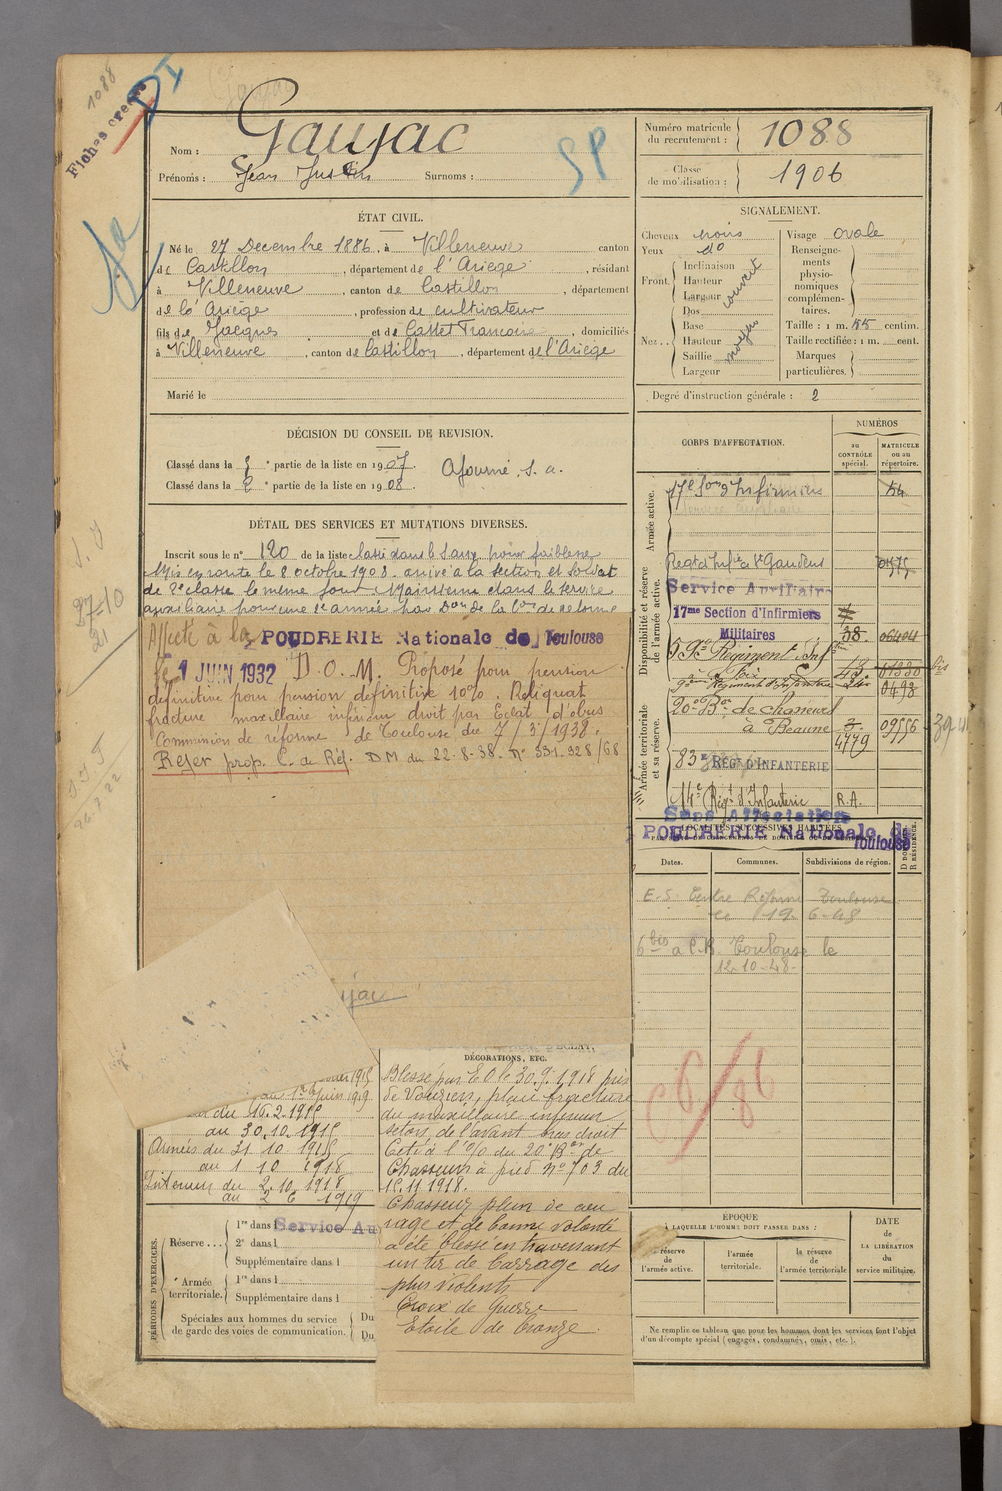 1088
Fiches
Gaujac
Nom :
Prénoms : Jean Justin Surnoms :
SP
ÉTAT CIVIL.
Né le 27 Decembre 1886, à Villeneuve canton
de Castillon, département de l'Ariège, résidant
à Villeneuve, canton de Castillon, département
de l'Ariège, profession de cultivateur
fils de Jacques et de Castet Francoise, domiciliés
à Villeneuve, canton de Castillon, département de l'Ariège
Marié le
DÉCISION DU CONSEIL DE REVISION.
Classé dans la partie de la liste en 1907. Ajourné, s. a.
Classé dans la 2e partie de la liste en 1908.
DÉTAIL DES SERVICES ET MUTATIONS DIVERSES.
Inscrit sous le n° 120 de la liste classé dans le S. aux. pour faiblesse
Mis en route le 8 octobre 1908. arrivé à la section et soldat
de 2e classe le même jour. Maintenu dans le service
auxiliaire pour une 2e armée par Don de la Con de reforme
Affecté à la POUDRERIE Nationale de Toulouse
le 1 JUIN 1932 D.O.M. Proposé pour pension
définitive pour pension définitive 10%. Reliquat
fracture maxillaire inférieur droit par Eclat d'obus
Commission de réforme de Toulouse du 7/3/1938.
Rejet prop. C. de Réf. DM du 22-8-38. N° 331.928/68
du 16.2.1915
au 30.10.1915
Armées du 31 10 1915
au 1 10 1918
Intérieur du 2.10.1918
au 2 6 1919
DÉCORATIONS, ETC.
Blessé par E O le 30.9.1918 près
de Vouziers, plaie fracture
du maxillaire inférieur
setons de l'avant bras droit
Cité à l'o/o du 20e Bon de
Chasseurs à pied n° 703 du
15.11.1918.
Chasseur plein de cou
rage et de bonne volonté
a été blessé en traversant
un tir de barrage des
plus violents
Croix de Guerre
Etoile de bronze.
PÉRIODES D'EXERCICES.
Réserve . . .
1re dans l Service Au
2e dans l
Supplémentaire dans l
Armée territoriale.
1re dans l
Supplémentaire dans l
Spéciales aux hommes du service
de garde des voies de communication.
Du
Du
Numéro matricule du recrutement : 1088
Classe de mobilisation : 1906
SIGNALEMENT.
Cheveux noirs Visage ovale
Yeux do
Front. Inclinaison Hauteur Largeur couvert
Nez . . Dos Base Hauteur Saillie Largeur moyen
Renseignements physionomiques complémentaires.
Taille : 1 m. 55 centim.
Taille rectifiée : 1 m. cent.
Marques particulières.
Degré d'instruction générale : 2
CORPS D'AFFECTATION.
NUMÉROS
au CONTRÔLE spécial.
MATRICULE ou au répertoire.
Armée active.
Disponibilité et réserve de l'armée active.
Armée territoriale et sa réserve.
17e Son d'Infirmiers 54
Regt d'Infie à St Gaudens
Service Auxiliaire
17me Section d'Infirmiers
Militaires 38
Regiment d'Inf
20e Bon de chasseurs
à Beaune 4779 09556
83e REGT D'INFANTERIE
14e Régt d'Infanterie R.A.
Sans Affectation
POUDRERIE Nationale de Toulouse
LOCALITÉS SUCCESSIVES HABITÉES
D DOMICILE. R RÉSIDENCE.
Dates. Communes. Subdivisions de région.
E.S. Centre Réforme Toulouse
le 19-6-48
6 bis à C.R. Toulouse le
12-10-48.
EPOQUE
À LAQUELLE L'HOMME DOIT PASSER DANS :
réserve de l'armée active.
l'armée territoriale.
la réserve de l'armée territoriale
DATE de LA LIBÉRATION du service militaire.
Ne remplir ce tableau que pour les hommes dont les services font l'objet
d'un décompte spécial (engagés, condamnés, omis, etc.).